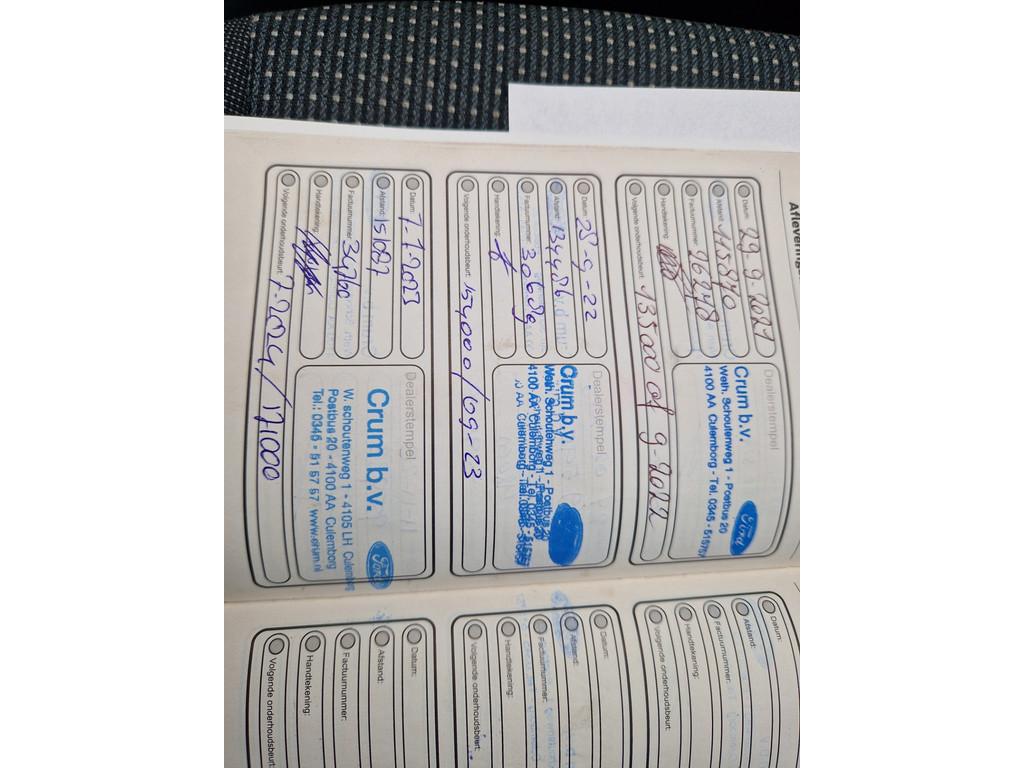 Aflevering
Datum: 29-9-2021
Afstand: 115870
Factuurnummer: 26278
Handtekening:
Volgende onderhoudsbeurt: 135000 of 9-2022
Dealerstempel
Crum b.v.
Weth. Schoutenweg 1 - Postbus 20
4100 AA Culemborg - Tel. 0345 - 515767
Ford
Datum: 28-9-22
Afstand: 134486
Factuurnummer: 30689
Handtekening:
Volgende onderhoudsbeurt: 154000/09-23
Dealerstempel
Crum b.v.
Weth. Schoutenweg 1 - Postbus 20
4100 AA Culemborg - Tel. 0345 - 515767
Datum: 7-7-2023
Afstand: 151087
Factuurnummer: 34760
Handtekening:
Volgende onderhoudsbeurt: 7-2024/171000
Dealerstempel
Crum b.v.
Ford
W. schoutenweg 1 - 4105 LH Culemborg
Postbus 20 - 4100 AA Culemborg
Tel.: 0345 - 51 57 67 www.crum.nl
Datum:
Afstand:
Factuurnummer:
Handtekening:
Volgende onderhoudsbeurt:
Datum:
Afstand:
Factuurnummer:
Handtekening:
Volgende onderhoudsbeurt:
Datum:
Afstand:
Factuurnummer:
Handtekening:
Volgende onderhoudsbeurt: